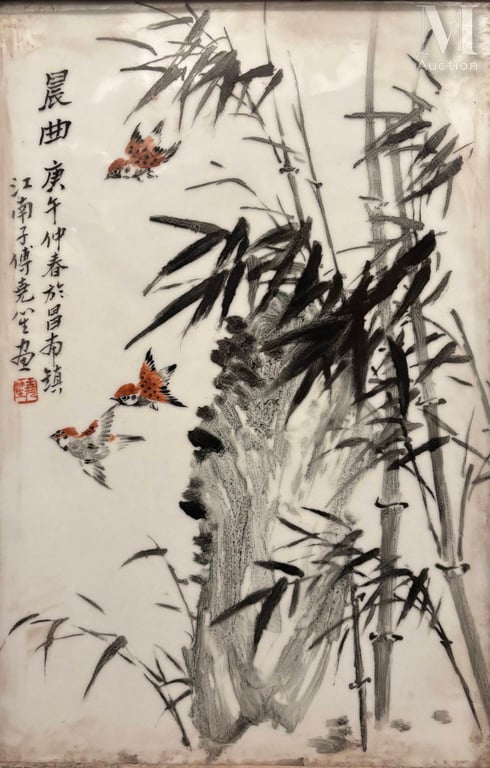 晨曲
庚午仲春於昌南鎮
江南子傅堯笙画
M
Auction